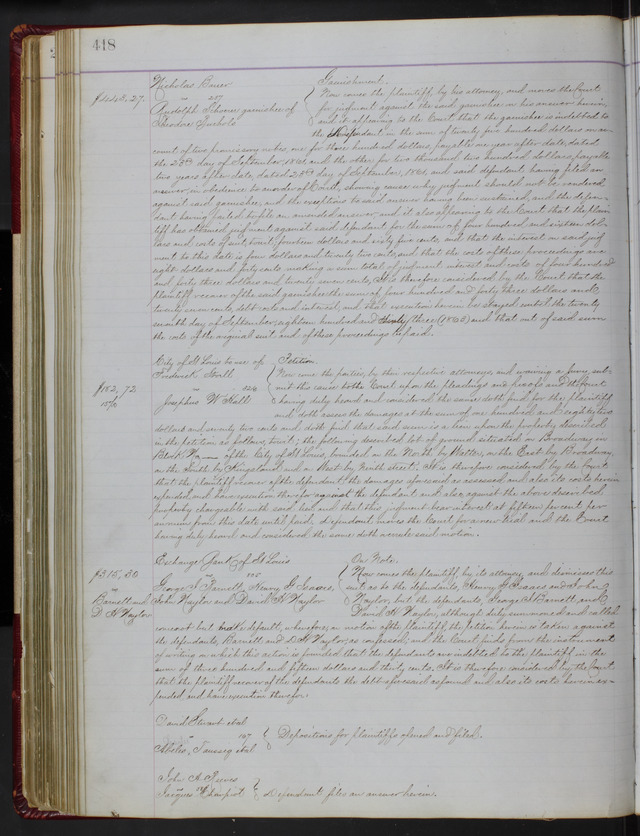 418
Nicholas Bauer
Garnishment.
Jd 443.27.
Now comes the plaintiff, by his attorney, and moves the Court
Rudolph garnishee of
for judgment against the said garnishee on his answer herein,
Theodore
and it appearing to the Court that the garnishee is indebted to
the defendant in the sum of twenty five hundred dollars on ac-
count of two promissory notes, one for three hundred dollars, payable one year after date, dated
the 28th day of September, 1861, and the other for two thousand two hundred dollars, payable
two years after date, dated 28th day of September, 1861, and said defendant, having filed an
answer, in obedience to an order of Court, showing cause why judgment should not be rendered
against said garnishee, and the exceptions to said answer having been sustained, and the defen-
dant having failed to file an amended answer, and it also appearing to the Court, that the plain-
tiff has obtained judgment against said defendant for the sum of four hundred and sixteen dol-
lars and costs of suit, fourteen dollars and sixty five cents, and that the interest on said judg-
ment to this date is four dollars and twenty two cents, and that the costs of these proceedings are
eight dollars and forty cents, making a sum total of judgment interest and costs of four hundred
and forty three dollars and twenty seven cents, It is therefore considered by the Court that the
plaintiff recover of the said garnishee the sum of four hundred and forty three dollars and
twenty seven cents, debt costs and interest, and that execution herein be stayed until the twenty
day of September, eighteen hundred and sixty three (1863) and that out of said sum
the costs of the original suit and of these proceedings be paid.
City of St Louis to use of
Petition.
Frederick
Now come the parties, by their respective attorneys and waiving a jury, sub-
Jd 182,72
mit this cause to the Court upon the pleadings and proofs and the Court
15%
Josephus W Hall
having duly heard and considered the same doth find for the plaintiff
and doth assess the damages at the sum of one hundred and eighty two
dollars and seventy two cents and doth find that said sum is a lien upon the property described
in the petition as follows, to wit; the following described lot of ground situated on Broadway in
Block No of the City of St Louis, bounded on the North by Walter, on the East by Broadway,
on the South by Kingsland and on West by Ninth street. It is therefore considered by the Court
that the plaintiff recover of the defendant the damages aforesaid as assessed and also its costs herein
expended and have execution therefor against the defendant and also against the above described
property chargeable with said lien and that this judgment bear interest at fifteen per cent per
annum from this date until paid. defendant moves the Court for a new trial and the Court
having duly heard and considered the same doth overrule said motion.
Exchange Bank of St Louis
On Note.
Jd 315,30
Now comes the plaintiff, by its attorney, and dismisses this
George S Barnett, Henry G Isaacs,
suit as to the defendants, Henry G Isaacs and John
Barnett and
John Naylor and David H Naylor
Naylor, but the defendants, George S Barnett, and
D H Naylor
David H Naylor, although duly summoned and called
come not but make default; wherefore, on motion of the plaintiff, the petition herein is taken against
the defendants, Barnett and D. H. Naylor, as confessed, and the Court finds from the instrument
of writing on which this action is founded that the defendants are indebted to the plaintiff in the
sum of three hundred and fifteen dollars and thirty cents. It is therefore considered by the Court
that the plaintiff recover of the defendants the debt aforesaid as found and also its costs herein ex-
pended and have execution therefor.
David Stuart et al
147
Depositions for plaintiffs opened and filed.
Abeles, Taussig et al
John A Reeves
Jacques
Defendant files an answer herein.